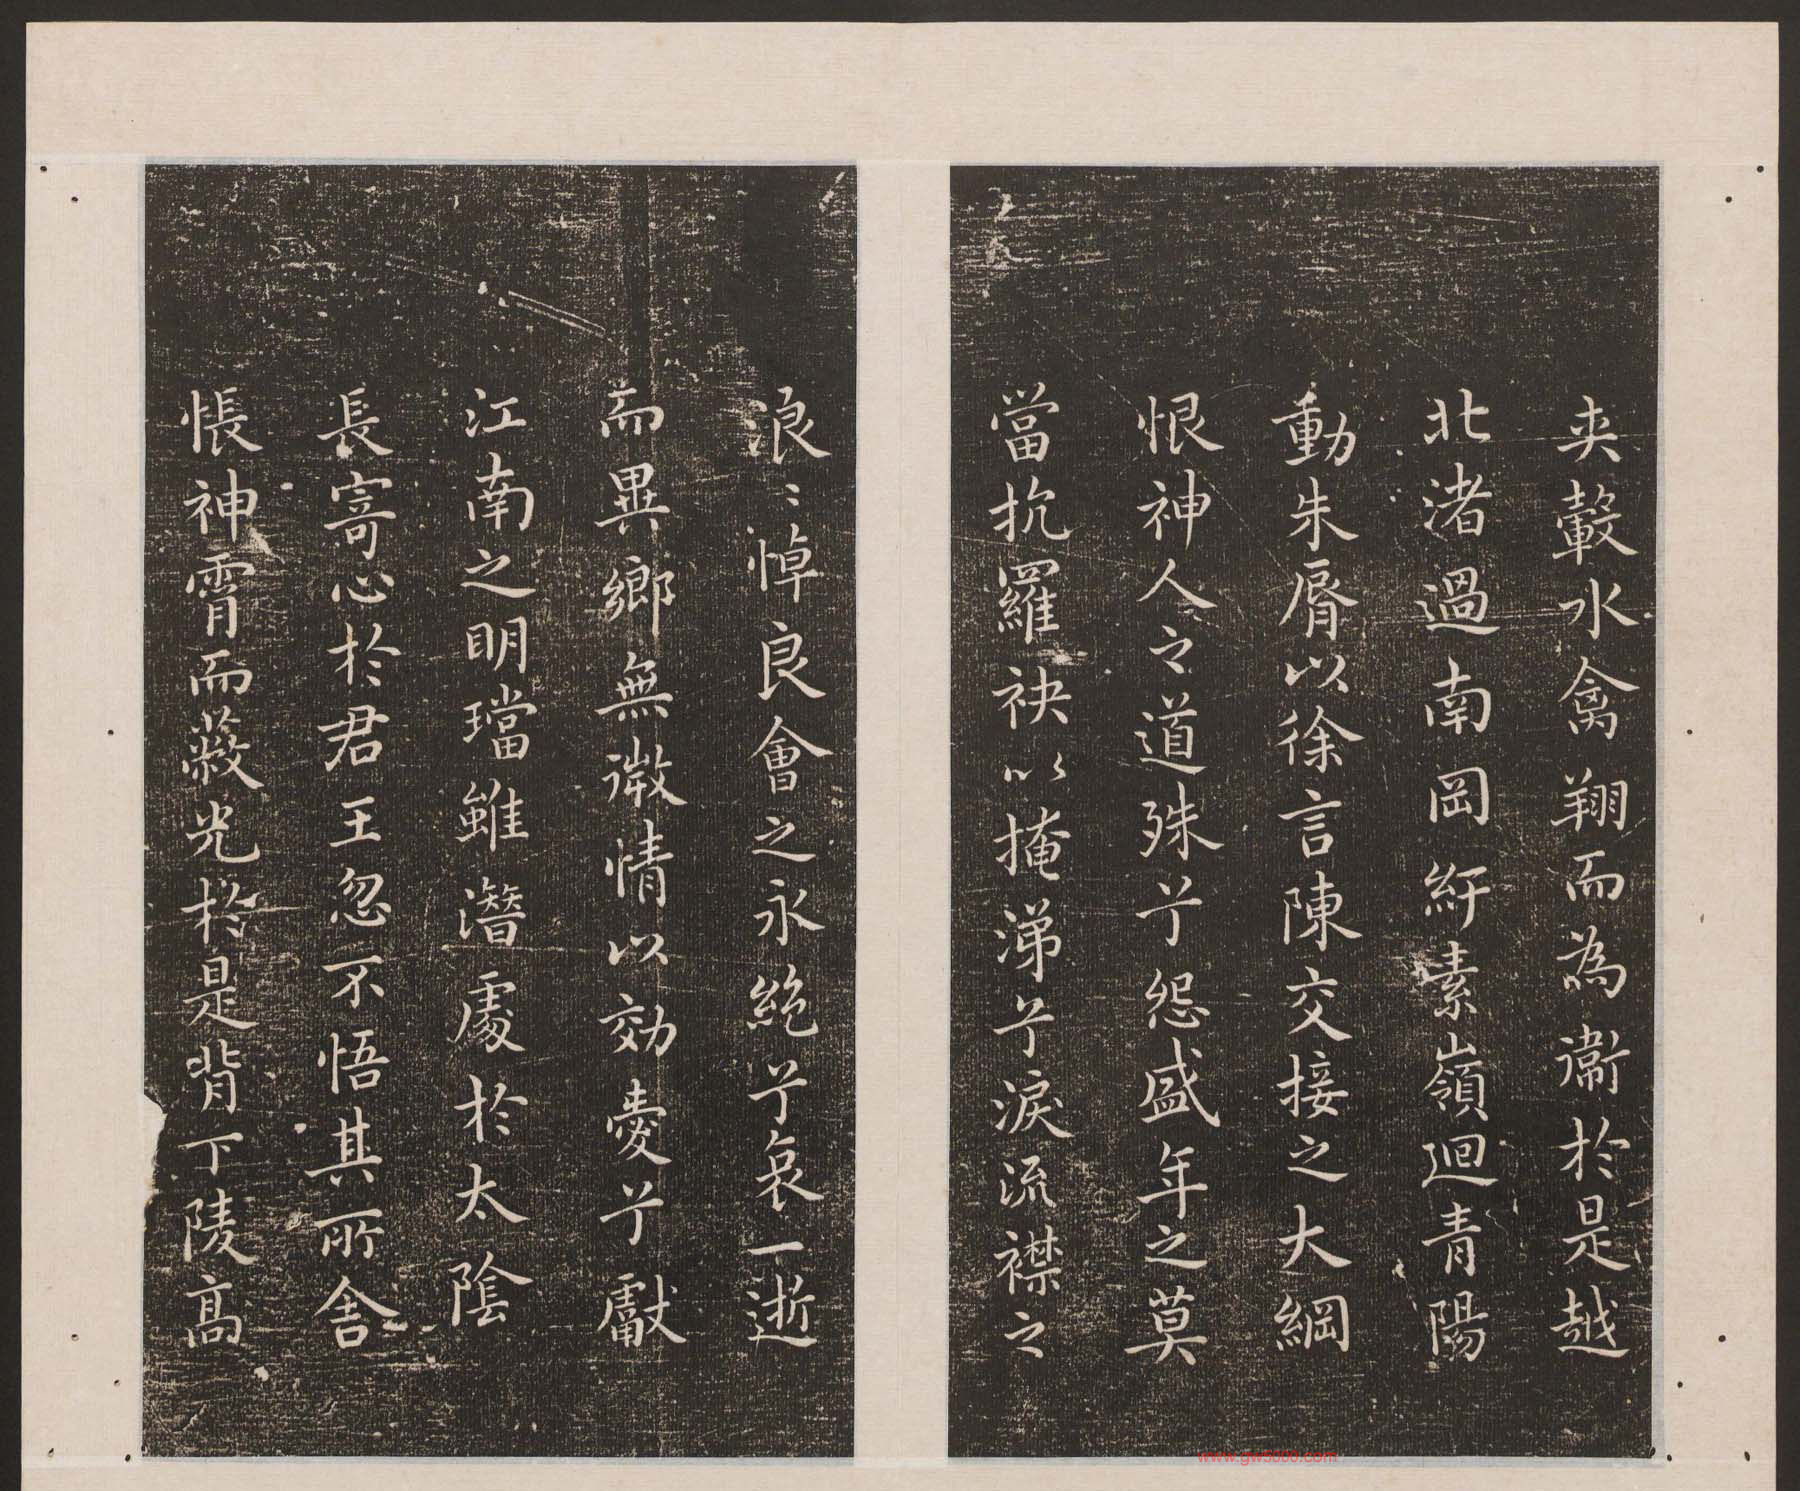 夹轂水禽翔而為衞於是越
北渚過南岡紆素嶺迴青陽
動朱脣以徐言陳交接之大綱
恨神人之道殊兮怨盛年之莫
當抗羅袂以掩涕兮淚流襟之
浪〻悼良會之永絶兮哀一逝
而異鄉無微情以効愛兮獻
江南之明璫雖潛處於太陰
長寄心於君王忽不悟其所舎
悵神霄而蔽光於是背下陵高
www.gw5000.com